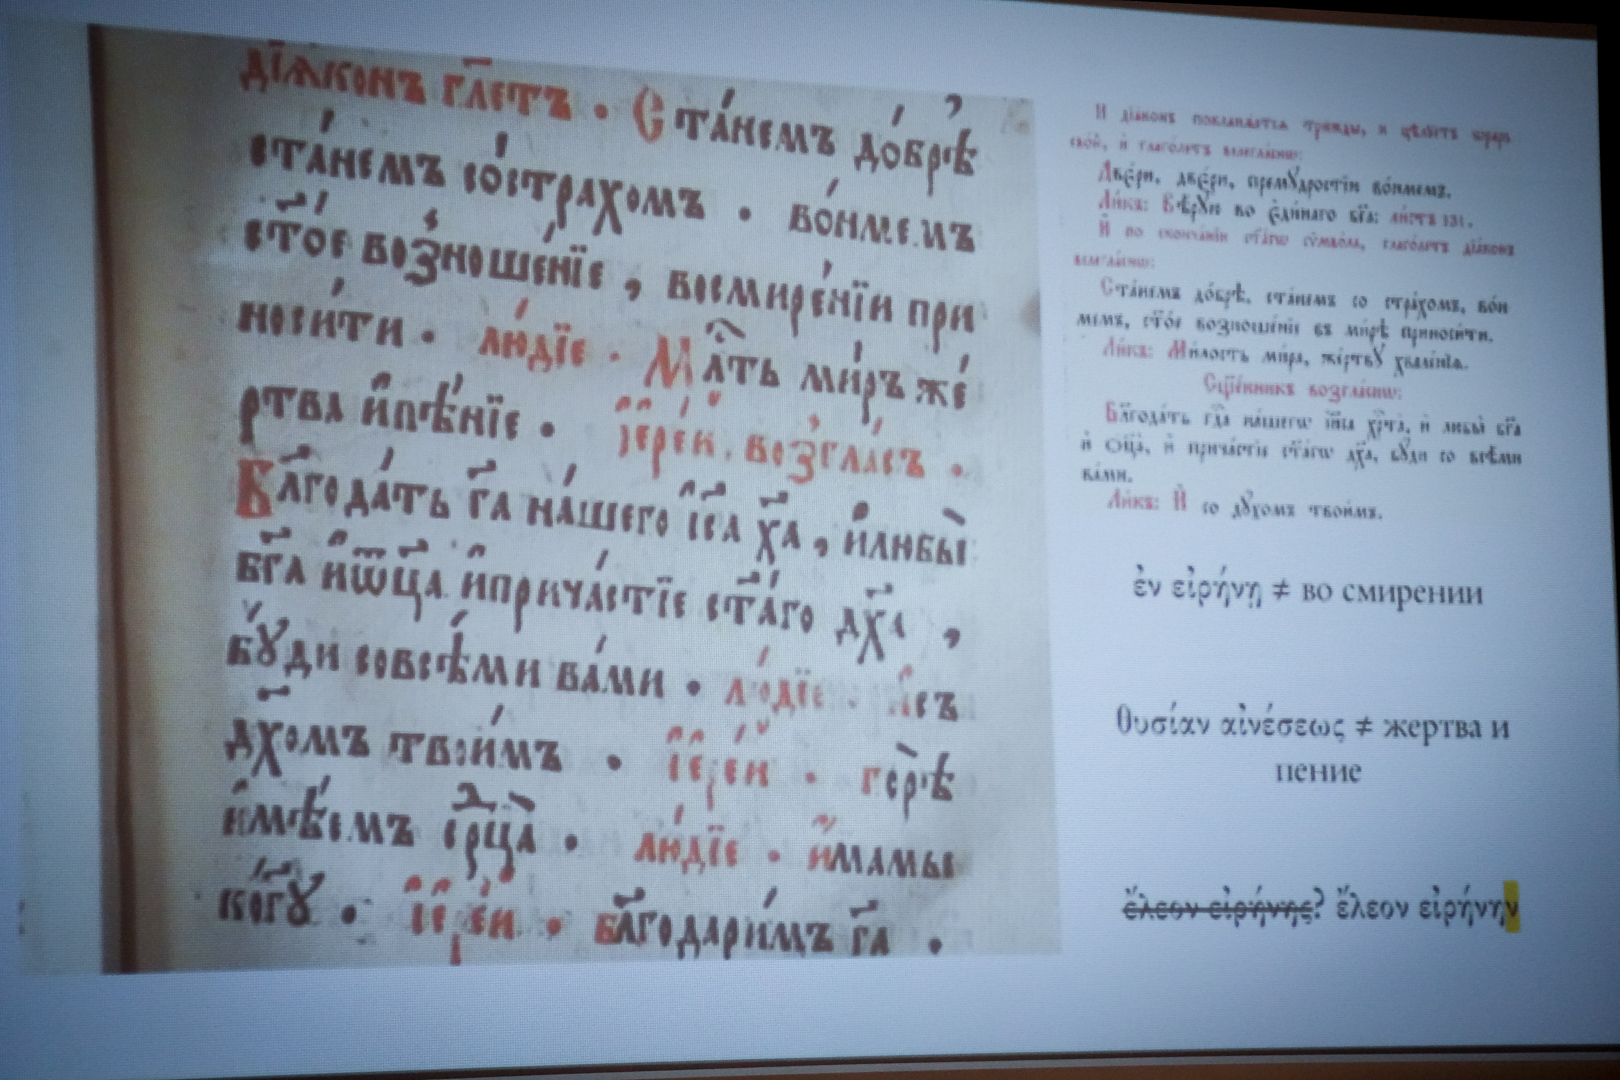 дїѧконъ гл҃етъ · Ста́немъ до́брѣ
ста́немъ со́страхомъ · во́нмемъ
ст҃о́е возноше́нїе , восмире́нїи при
носи́ти · лю́дїе · Мл҃ть ми́ръ же́
ртва и҆пѣ́нїе · і҆ере́и . возгла́съ ·
Бл҃года́ть гс҃а на́шего і҆с҃а хс҃а , и҆любы̀
бг҃а и҆ѿц҃а и҆прича́стїе ст҃а́го дх҃а ,
бꙋ́ди совсѣ́ми ва́ми · лю́дїе · и҆съ
дх҃омъ твои́мъ · і҆ере́и · горѣ̀
и҆мѣ́емъ срц҃а̀ · лю́дїе · и҆мамы
кого҃ꙋ · і҆ере́и · бл҃годари́мъ гс҃а ·
И҆ дїа́конъ покланѧ́етсѧ три́жды, и҆ цѣлꙋ́етъ ѡ҆ра́рь
сво́й, и҆ глаго́летъ велегла́снѡ:
Две́ри, две́ри, премꙋ́дростїю во́нмемъ.
Ли́къ: Вѣ́рꙋю во є҆ди́наго бг҃а: ли́стъ 131.
И҆ по сконча́нїи ст҃а́гѡ сѷмво́ла, глаго́летъ дїа́конъ
велегла́снѡ:
Ста́немъ до́брѣ, ста́немъ со стра́хомъ, во́н
мемъ, ст҃о́е возноше́нїе въ ми́рѣ приноси́ти.
Ли́къ: Ми́лость ми́ра, же́ртвꙋ хвале́нїѧ.
Сщ҃е́нникъ возгла́снѡ:
Бл҃года́ть гдⷭ҇а на́шегѡ і҆и҃са хрⷭ҇та̀, и҆ любы̀ бг҃а
и҆ ѻ҆ц҃а̀, и҆ прича́стїе ст҃а́гѡ дх҃а, бꙋ́ди со всѣ́ми
ва́ми.
Ли́къ: И҆ со дꙋ́хомъ твои́мъ.
ἐν εἰρήνῃ ≠ во смирении
θυσίαν αἰνέσεως ≠ жертва и
пение
ἔλεον εἰρήνης? ἔλεον εἰρήνην